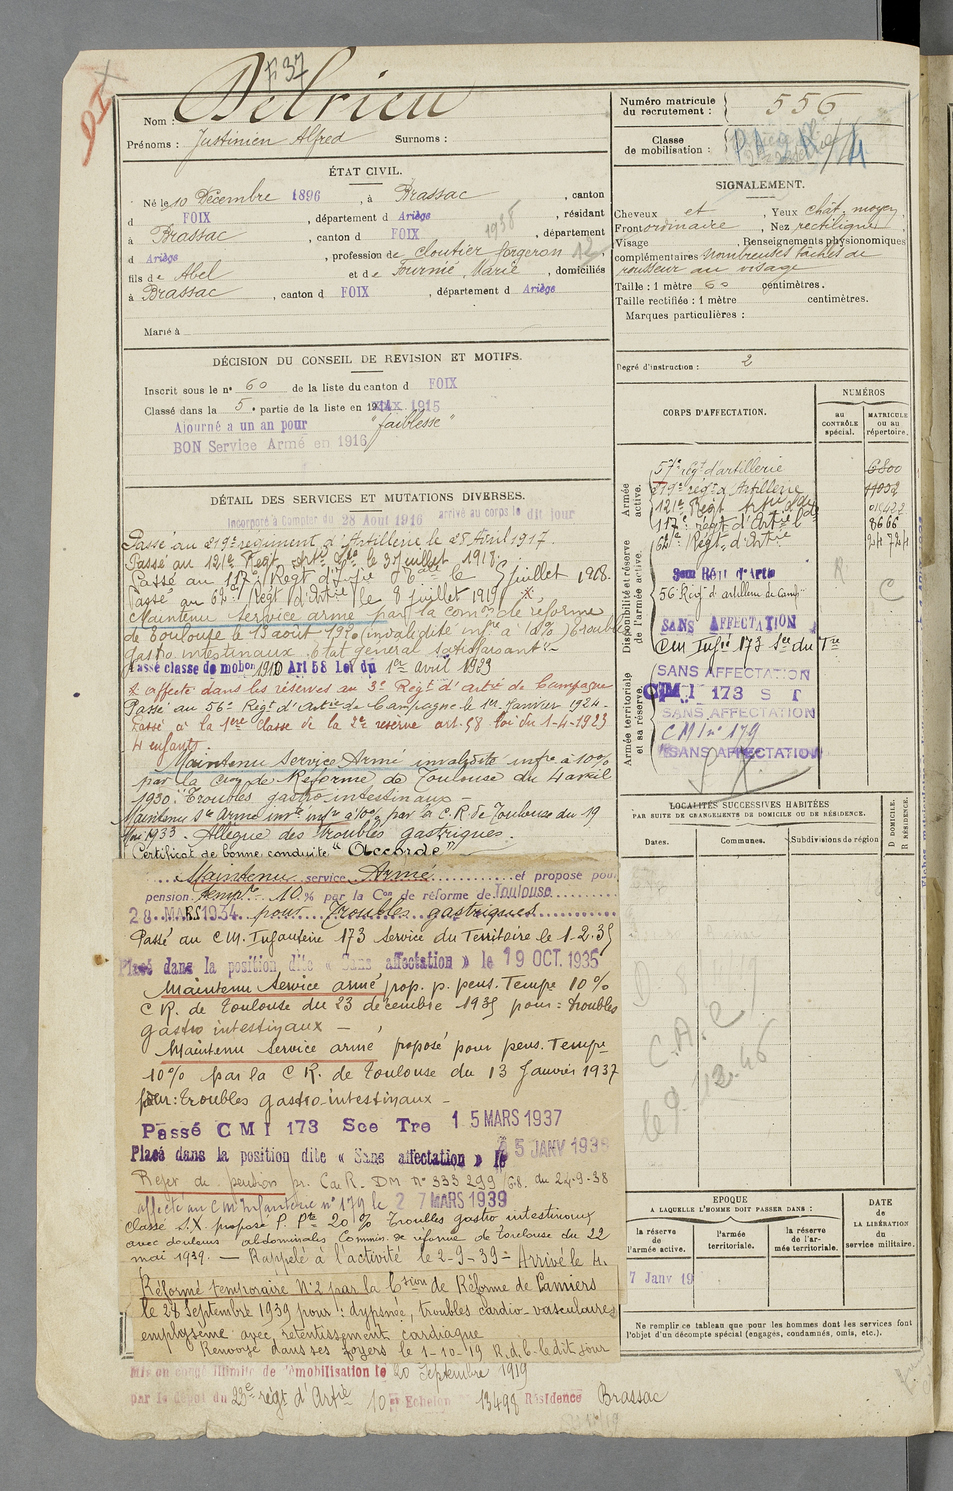 F 37
Nom : Delrieu
Prénoms : Justinien Alfred Surnoms :
ÉTAT CIVIL.
Né le 10 Décembre 1896, à Brassac, canton
d FOIX, département d Ariège, résidant
à Brassac, canton d FOIX, département
d Ariège, profession de cloutier forgeron
fils de Abel et de Fournié, Marie, domiciliés
à Brassac, canton d FOIX, département d Ariège
Marié à
DÉCISION DU CONSEIL DE REVISION ET MOTIFS.
Inscrit sous le n° 60 de la liste du canton d FOIX
Classé dans la 5e partie de la liste en 1915
Ajourné a un an pour "faiblesse"
BON Service Armé en 1916
DÉTAIL DES SERVICES ET MUTATIONS DIVERSES.
Incorporé à Compter du 28 Août 1916 arrivé au corps le dit jour
Passé au 219e régiment d'Artillerie le 28 Avril 1917.
Passé au 121e Régt Artie Lde le 3 Juillet 1918
Passé au 117e Régt d'Artie le juillet 1918.
Passé au 62e Régt d'Artie le 8 juillet 1919
Maintenu service armé par la comon de réforme
de Toulouse le 13 août 1920 (invalidité infre à 10%) Troubles
gastro intestinaux. Etat général satisfaisant
Passé classe de mobon 1910 Art 58 Loi du 1er avril 1923
affecté dans les réserves au 3e Régt d'Artie de Campagne
Passé au 56e Régt d'Artie de Campagne le 1er Janvier 1924.
Passé à la 1ère classe de la 2e réserve art. 58 loi du 1-4-1923
4 enfants.
Maintenu Service Armé invalidité infre à 10%
par la Cion de Réforme de Toulouse du 4 avril
1930: Troubles gastro intestinaux
Maintenu Sce Armé invté infre à 10% par la C.R de Toulouse du 19
Mai 1933. Allègue des troubles gastriques.
Certificat de bonne conduite "Accordé"
Maintenu service Armé et proposé pour
pension Tempre 10 % par la Con de réforme de Toulouse
28 MARS 1934 pour Troubles gastriques
Passé au C.M. Infanterie 173 Service du Territoire le 1-2-35
Placé dans la position dite « Sans affectation » le 19 OCT. 1935
Maintenu Service armé prop. p. pens. Tempre 10%
C.R. de Toulouse du 23 décembre 1935 pour = troubles
gastro intestinaux
Maintenu Service armé proposé pour pens. Tempre
10% par la C R. de Toulouse du 13 Janvier 1937
pour: troubles gastro-intestinaux
Passé C M I 173 Sce Tre 15 MARS 1937
Placé dans la position dite « Sans affectation » le 5 JANV 1938
Rejet de pension pr. C de R. DM N° 333299/68. du 24-9-38
affecté au CM Infanterie n° 179 le 27 MARS 1939
Classé S.X. proposé P. Pte 20% Troubles gastro intestinaux
avec douleurs abdominales Commis. de réforme de Toulouse du 22
mai 1939. — Rappelé à l'activité le 2-9-39 = Arrivé le 4.
Réformé temporaire N°2 par la Ction de Réforme de Pamiers
le 28 Septembre 1939 pour: dypsnée, troubles cardio-vasculaires
emphysème avec retentissement cardiaque
Renvoyé dans ses foyers le 1-10-19 R.d.C. le dit jour
Mis en congé illimité de démobilisation le 20 Septembre 1919
par le dépôt du 23e régt d'Artie 10e Echelon 13498 Résidence Brassac
Numéro matricule
du recrutement : 556
Classe
de mobilisation :
SIGNALEMENT.
Cheveux et, Yeux chât. moyen
Front ordinaire, Nez rectiligne
Visage, Renseignements physionomiques
complémentaires Nombreuses tâches de
rousseur au visage
Taille : 1 mètre 60 centimètres.
Taille rectifiée : 1 mètre centimètres.
Marques particulières :
Degré d'instruction : 2
CORPS D'AFFECTATION.
NUMÉROS
au
CONTRÔLE
spécial.
MATRICULE
ou au
répertoire.
Armée
active.
57e régt d'artillerie 6800
219e régt d'Artillerie
121e Régt Artie Lde
117e régt d'Artie Lde 8666
62e Régt d'Artie 24724
Disponibilité et réserve
de l'armée active.
56 Régt d'artillerie de Camp
SANS AFFECTATION
CM Infie 173 Sce du Tre
Armée territoriale
et sa réserve.
SANS AFFECTATION
CMI 173 S T
SANS AFFECTATION
C M I n° 179
SANS AFFECTATION
S.X.
R.
C
LOCALITÉS SUCCESSIVES HABITÉES
PAR SUITE DE CHANGEMENTS DE DOMICILE OU DE RÉSIDENCE.
Dates. Communes. Subdivisions de région
D. DOMICILE.
R. RÉSIDENCE.
C.A.C
le 9-12-46
EPOQUE
A LAQUELLE L'HOMME DOIT PASSER DANS :
la réserve
de
l'armée active.
l'armée
territoriale.
la réserve
de l'ar-
mée territoriale.
DATE
de
LA LIBÉRATION
du
service militaire.
7 Janv 19
Ne remplir ce tableau que pour les hommes dont les services font
l'objet d'un décompte spécial (engagés, condamnés, omis, etc.).